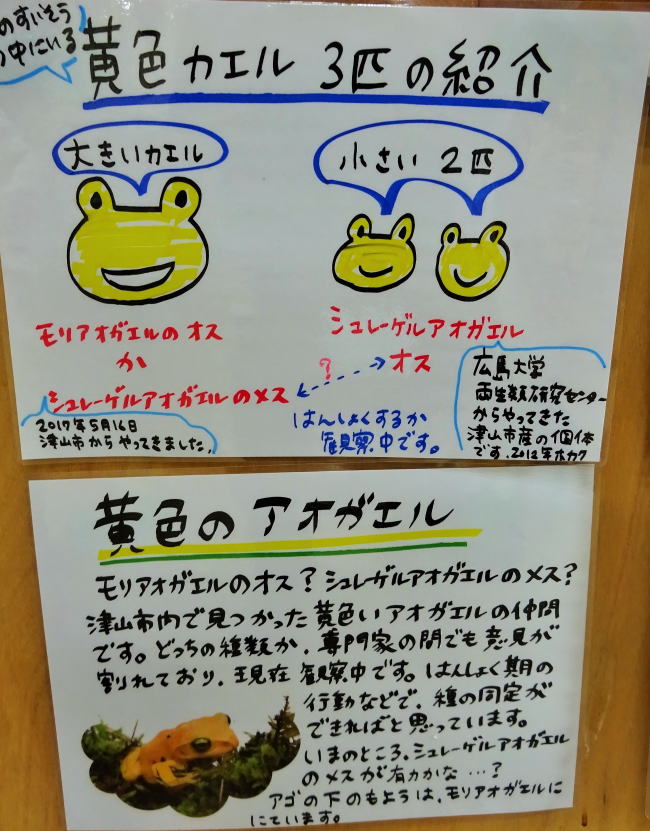 のすいそう
の中にいる
黄色カエル 3匹の紹介
大きいカエル
小さい 2匹
モリアオガエルのオス
か
シュレーゲルアオガエルのメス
2017年5月16日
津山市からやってきました。
シュレーゲルアオガエル
オス
?
はんしょくするか
観察中です。
広島大学
両生類研究センター
からやってきた
津山市産の個体
です。2012年ホカク
黄色のアオガエル
モリアオガエルのオス?シュレーゲルアオガエルのメス?
津山市内で見つかった黄色いアオガエルの仲間
です。どっちの種類か、専門家の間でも意見が
割れており、現在観察中です。はんしょく期の
行動などで、種の同定が
できればと思っています。
いまのところ、シュレーゲルアオガエル
のメスが有力かな…?
アゴの下のもようは、モリアオガエルに
にています。